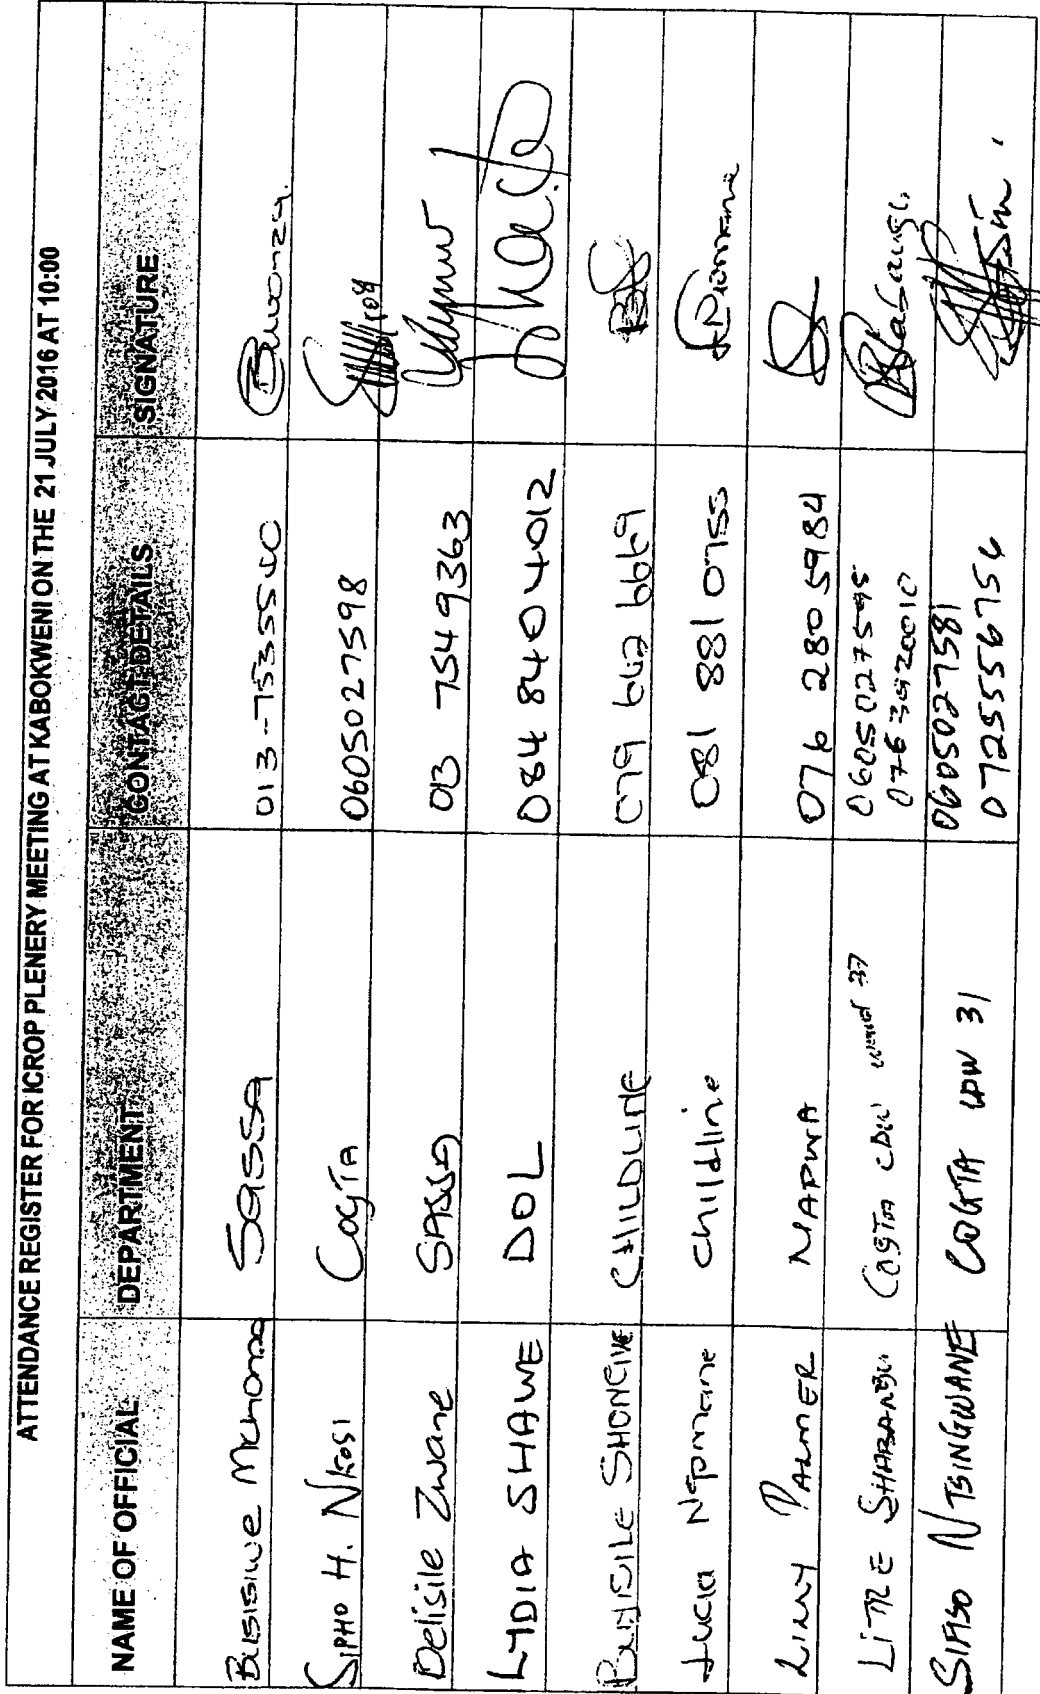 ATTENDANCE REGISTER FOR ICROP PLENERY MEETING AT KABOKWENI ON THE 21 JULY 2016 AT 10:00
NAME OF OFFICIAL DEPARTMENT CONTACT DETAILS SIGNATURE
Busisiwe Mkhonza Sassa 013-7535500
Sipho H. Nkosi CogTA 0605027598
Delisile Zwane SASSA 013 7549363
LYDIA SHAWE DOL 084 840 4012
SHONGWE CHILDLINE 079 642 6669
Lucia Ngomane Childline 081 881 0755
Linny PALMER MAPWA 076 2805984
LiTTLE SHABANGU CogTA CDW ward 37 0605027595
SIFISO NTSINGWANE COGTA WDW 31 0605027581
0725556754